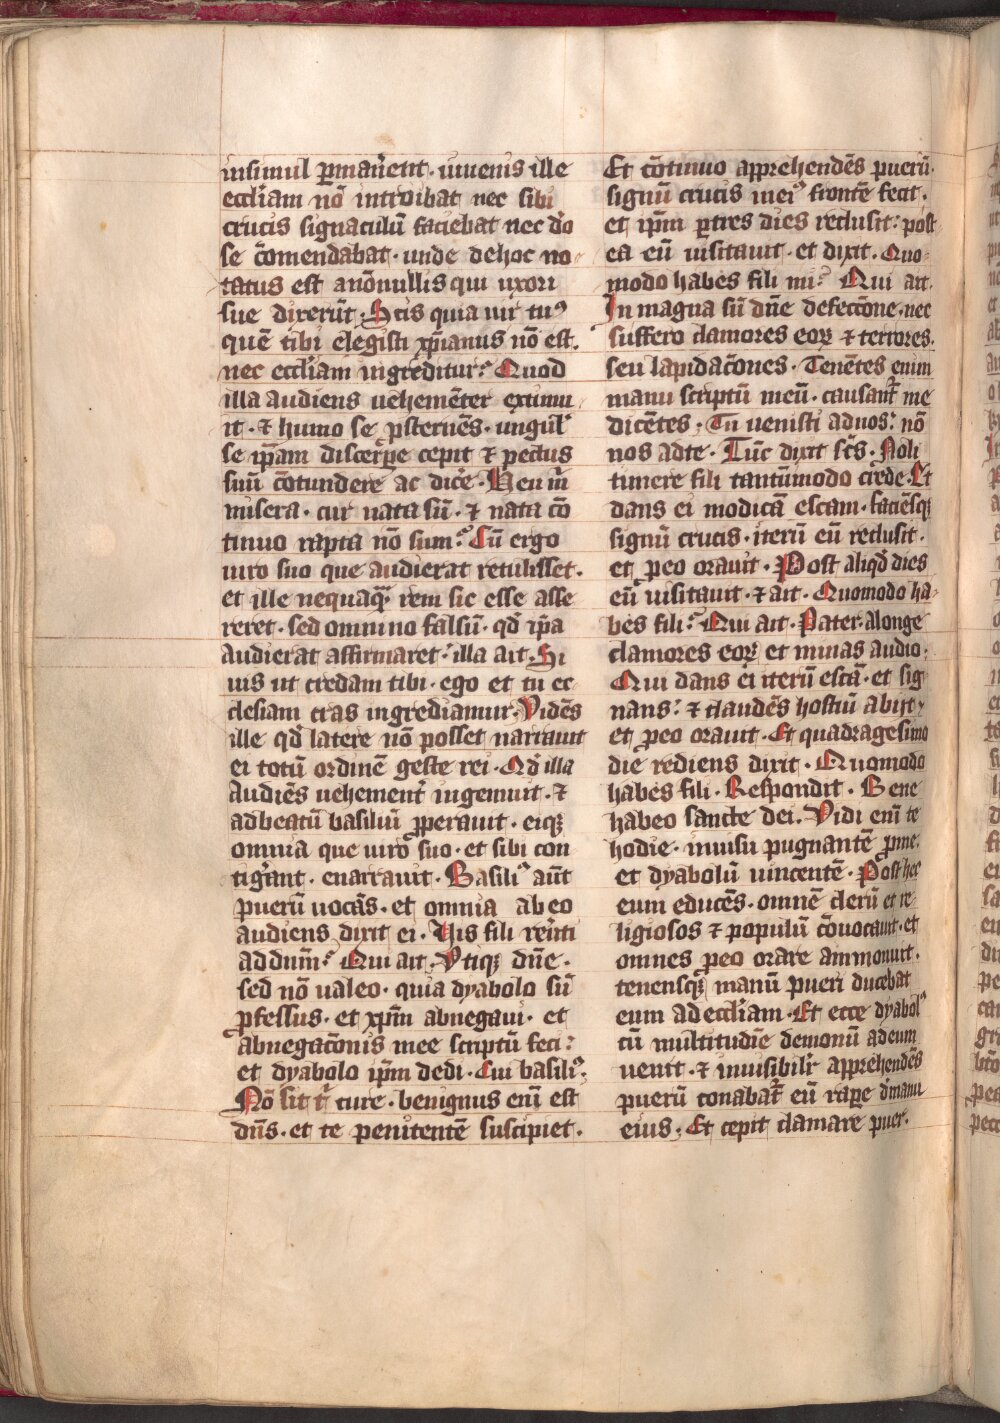 insimul ꝑmaneͬent · iuuenis ille
eccl̄iam nō introibat nec sibi
crucis signaculū faciebat nec d̄o
se c̄omendabat · unde dehoc no-
tatus est anōnullis qui uxori
sue dixerūt · Scis quia uir tuꝰ
quē tibi elegisti xp̄ianus nō est ·
nec eccl̄iam ingreditur · Quod
illa audiens uehemēter extimu
it · ⁊ humo se ꝓsternēs · ungul'
se ip̄am discerꝑe cepit ⁊ pectus
suū c̄otundere ac dic̄e · Heu m̄
misera · cur nata sū · ⁊ nata cō
tinuo rapta nō sum · Cū ergo
uiro suo que audierat retulisset ·
et ille nequaq̄ rem sic esse asse
reret · sed omnino falsū · qd̄ ip̄a
audierat affirmaret · illa ait · Si
uis ut credam tibi · ego et tu ec
clesiam cras ingrediamur · Vidēs
ille qd̄ latere nō posset narrauit
ei totū ordinē geste rei · Qd̄ illa
audiēs uehement̄ ingemuit · ⁊
adbeatū basiliū ꝓperauit · eiqꝫ
omnia que uiro suo · et sibi con
tiḡant · enarrauit · Basiliꝰ aūt
puerū uocās · et omnia abeo
audiens dixit ei · Vis fili reūti
addnm̄ · Qui ait · Vtiqꝫ dn̄e ·
sed nō ualeo · quia dyabolo sū
ꝓfessus · et xpm̄ abnegaui · et
abnegac̄onis mee scriptū feci :
et dyabolo ip̄m dedi · Cui basiliꝰ ·
Nō sit t̄ cure · benignus eni̅ est
dn̄s · et te penitentē suscipiet ·
Et c̄otinuo apprehendēs puerū ·
signū crucis ineiꝰ frontē fecit ·
et ip̄m ꝑtres dies reclusit : post
ea eū uisitauit · et dixit · Quo-
modo habes fili mi · Qui ait ·
In magna sū dn̄e defecc̄one · nec
suffero clamores eoꝝ ⁊ terrores ·
seu lapidac̄ones · Tenētes enim
manu scriptū meū · causant̄ me
dicētes · Tu uenisti aduos : nō
nos adte · Tūc dixit sc̄s · Noli
timere fili tantūmodo crede · Et
dans ei modicā escam · faciēsqꝫ
signū crucis · iterū eū reclusit ·
et ꝓeo orauit · Post aliqd̄ dies
eū uisitauit · ⁊ ait · Quomodo ha-
bes fili · Qui ait · Pater · alonge
clamores eoꝝ et minas audio ·
Qui dans ei iterū escā · et sig
nans · ⁊ claudēs hostiū abiit ·
et ꝓeo orauit · Et quadragesimo
die rediens dixit · Quomodo
habes fili · Respondit · Bene
habeo sancte dei · Vidi eni̅ te
hodie · inuisu pugnantē ꝓme ·
et dyabolū uincentē · Post hec
eum educēs · omnē clerū et re-
ligiosos ⁊ populū c̄ouocauit · et
omnes ꝓeo orare ammonuit ·
tenensqꝫ manū pueri ducebat
eum adeccl̄iam · Et ecce dyabolꝰ
cū multitudīe demonū adeum
uenit · ⁊ inuisibilr̄ apprehendēs
puerū conabat̄ eū raꝑe d̄manu
eius · Et cepit clamare puer ·